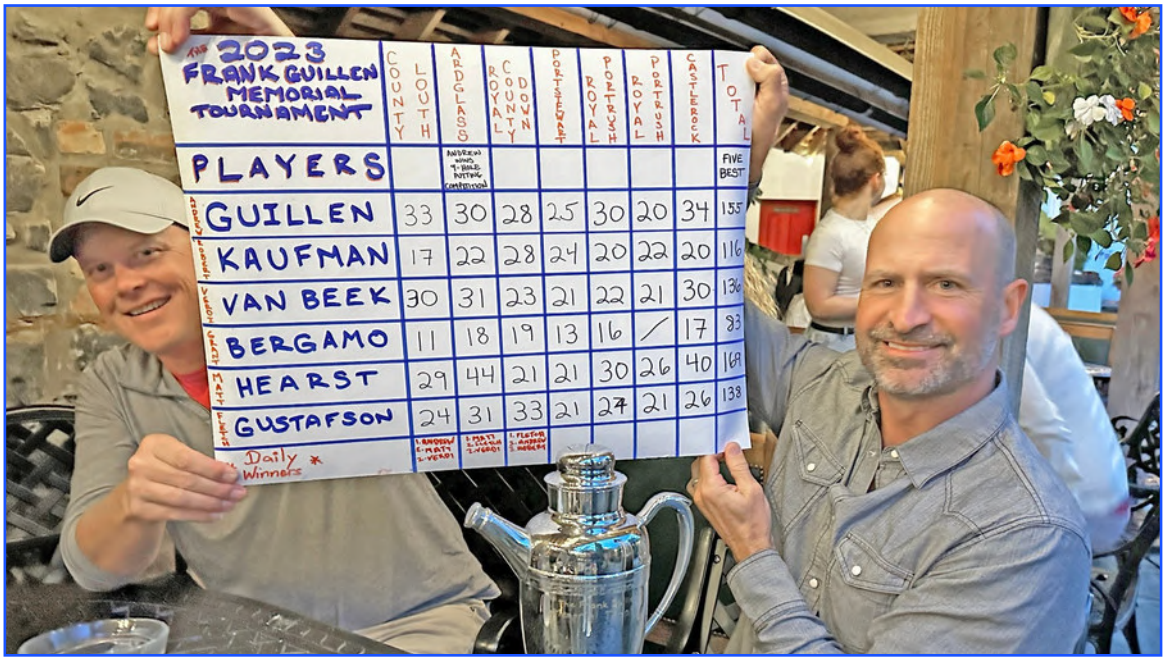 THE 2023
FRANK GUILLEN
MEMORIAL
TOURNAMENT
COUNTY LOUTH
ARDGLASS
ROYAL COUNTY DOWN
PORTSTEWART
ROYAL PORTRUSH
ROYAL PORTRUSH
CASTLEROCK
TOTAL
PLAYERS
ANDREW
WINS
9-HOLE
PUTTING
COMPETITION
FIVE
BEST
ANDREW GUILLEN 33 30 28 25 30 20 34 155
ROBERT KAUFMAN 17 22 28 24 20 22 20 116
VERDI VAN BEEK 30 31 23 21 22 21 30 136
GRANT BERGAMO 11 18 19 13 16 / 17 83
MATT HEARST 29 44 21 21 30 26 40 169
FLETCH GUSTAFSON 24 31 33 21 24 21 26 138
* Daily *
Winners
1. ANDREW
2. MATT
3. VERDI
1. MATT
2. FLETCH
3. VERDI
1. FLETCH
2. ANDREW
3. ROBERT